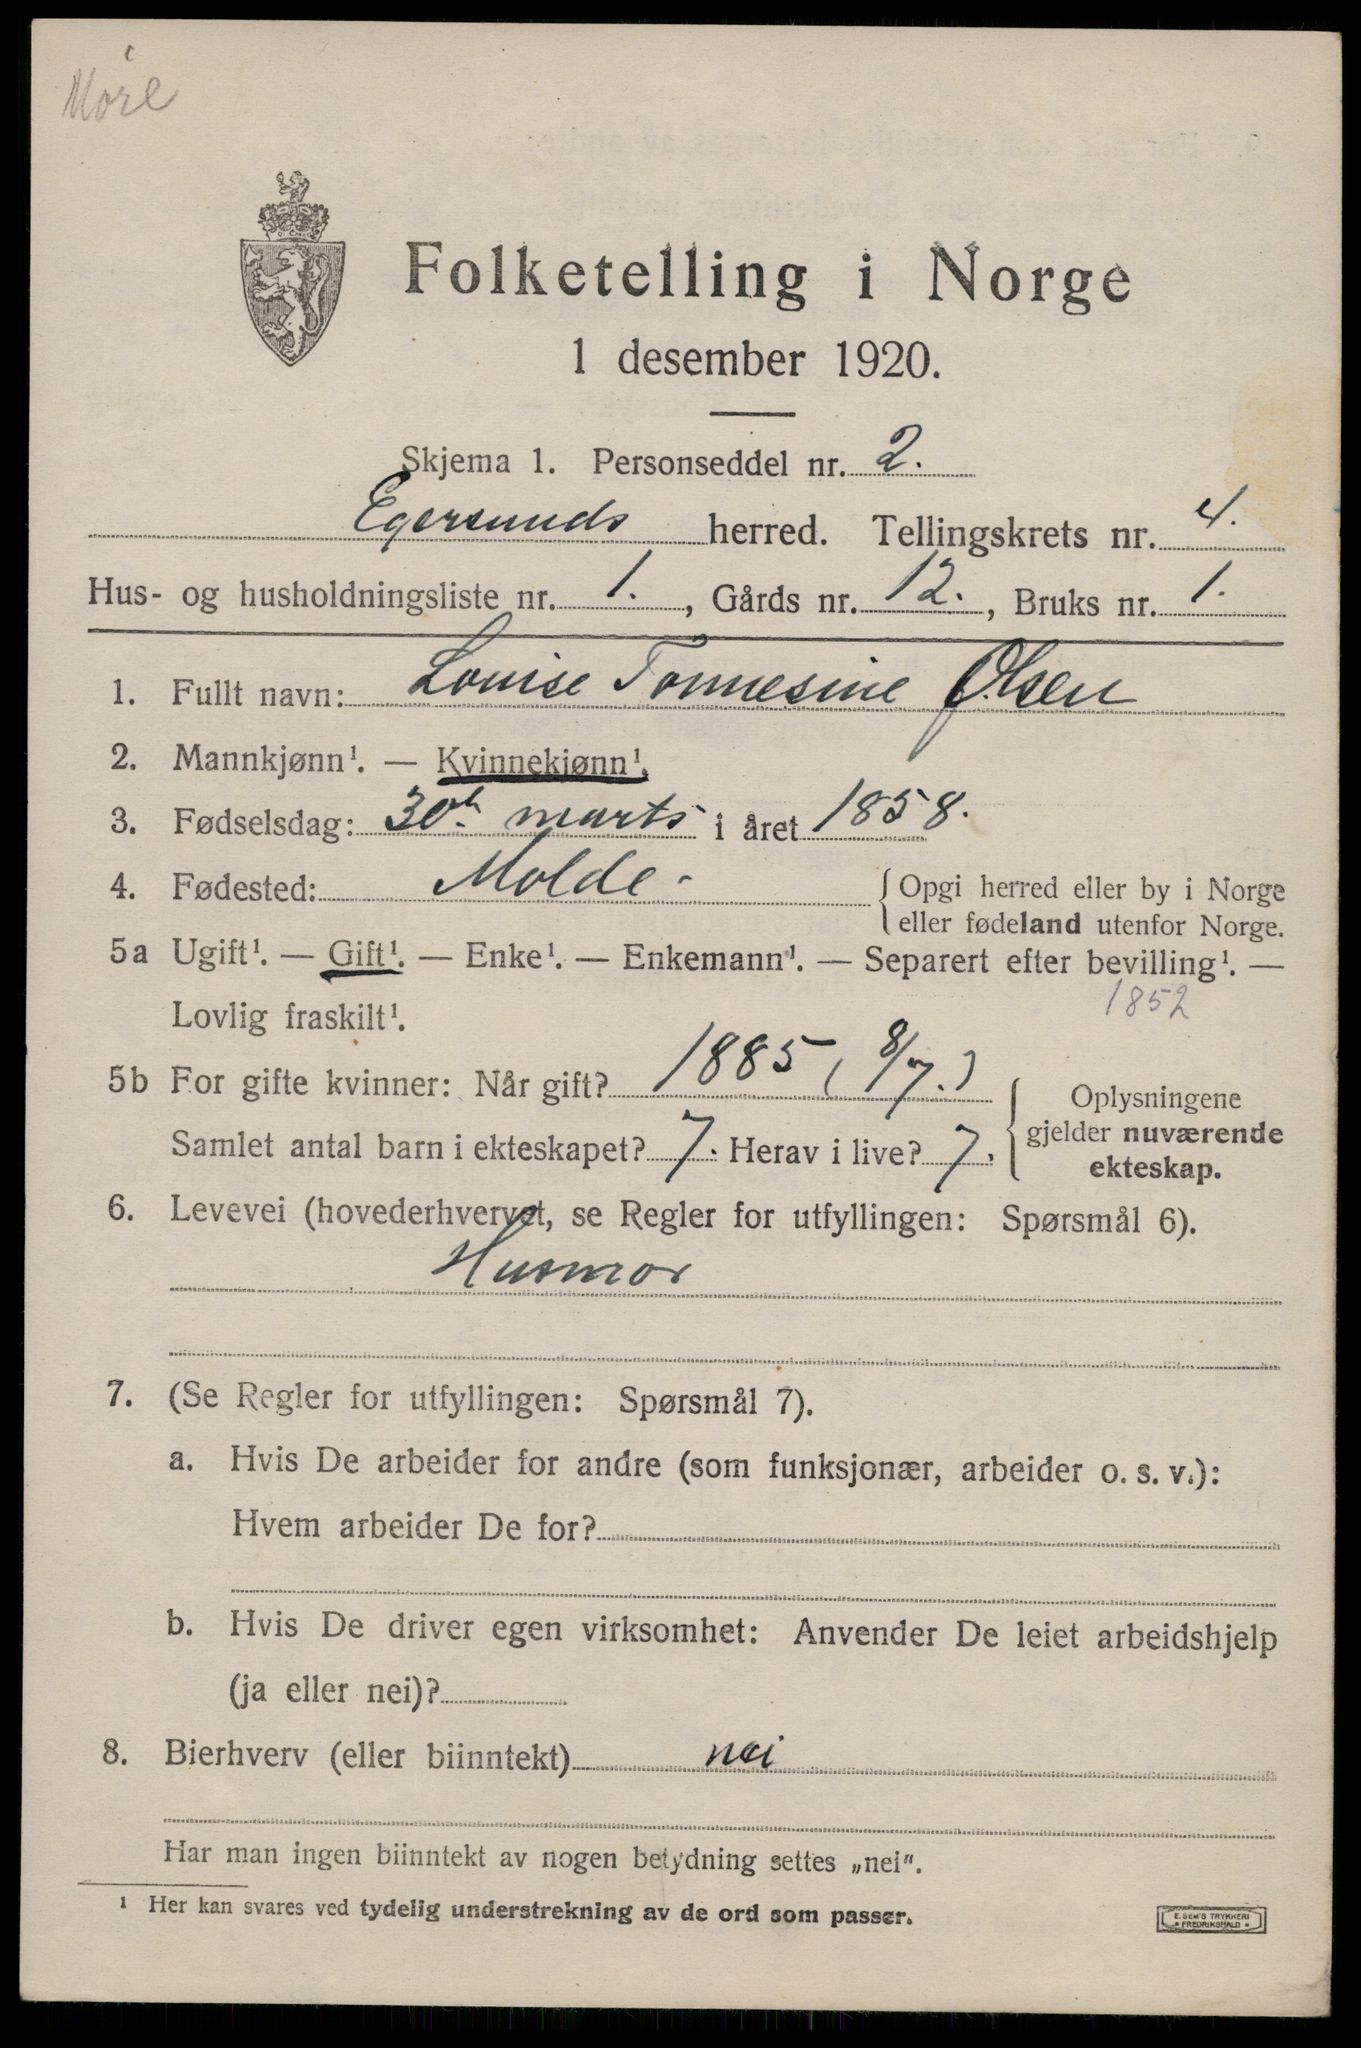 Møre
Folketelling i Norge
1 desember 1920.
Skjema 1. Personseddel nr. 2.
Egersunds herred. Tellingskrets nr. 4.
Hus- og husholdningsliste nr. 1., Gårds nr. 12., Bruks nr. 1.
1. Fullt navn: Louise Tonnesine Olsen
2. Mannkjønn¹. — Kvinnekjønn¹.
3. Fødselsdag: 30te marts i året 1858.
4. Fødested: Molde - { Opgi herred eller by i Norge
eller fødeland utenfor Norge.
5a Ugift¹. — Gift¹. — Enke¹. — Enkemann¹. — Separert efter bevilling¹. —
1852
Lovlig fraskilt¹.
5b For gifte kvinner: Når gift? 1885 (8/7.)
Samlet antal barn i ekteskapet? 7. Herav i live? 7.
{ Oplysningene
gjelder nuværende
ekteskap.
6. Levevei (hovederhvervet, se Regler for utfyllingen: Spørsmål 6).
Husmor
7. (Se Regler for utfyllingen: Spørsmål 7).
a. Hvis De arbeider for andre (som funksjonær, arbeider o. s. v.):
Hvem arbeider De for?
b. Hvis De driver egen virksomhet: Anvender De leiet arbeidshjelp
(ja eller nei)?
8. Bierhverv (eller biinntekt) nei
Har man ingen biinntekt av nogen betydning settes „nei".
¹ Her kan svares ved tydelig understrekning av de ord som passer.
E. SEM'S TRYKKERI
* FREDRIKSHALD *